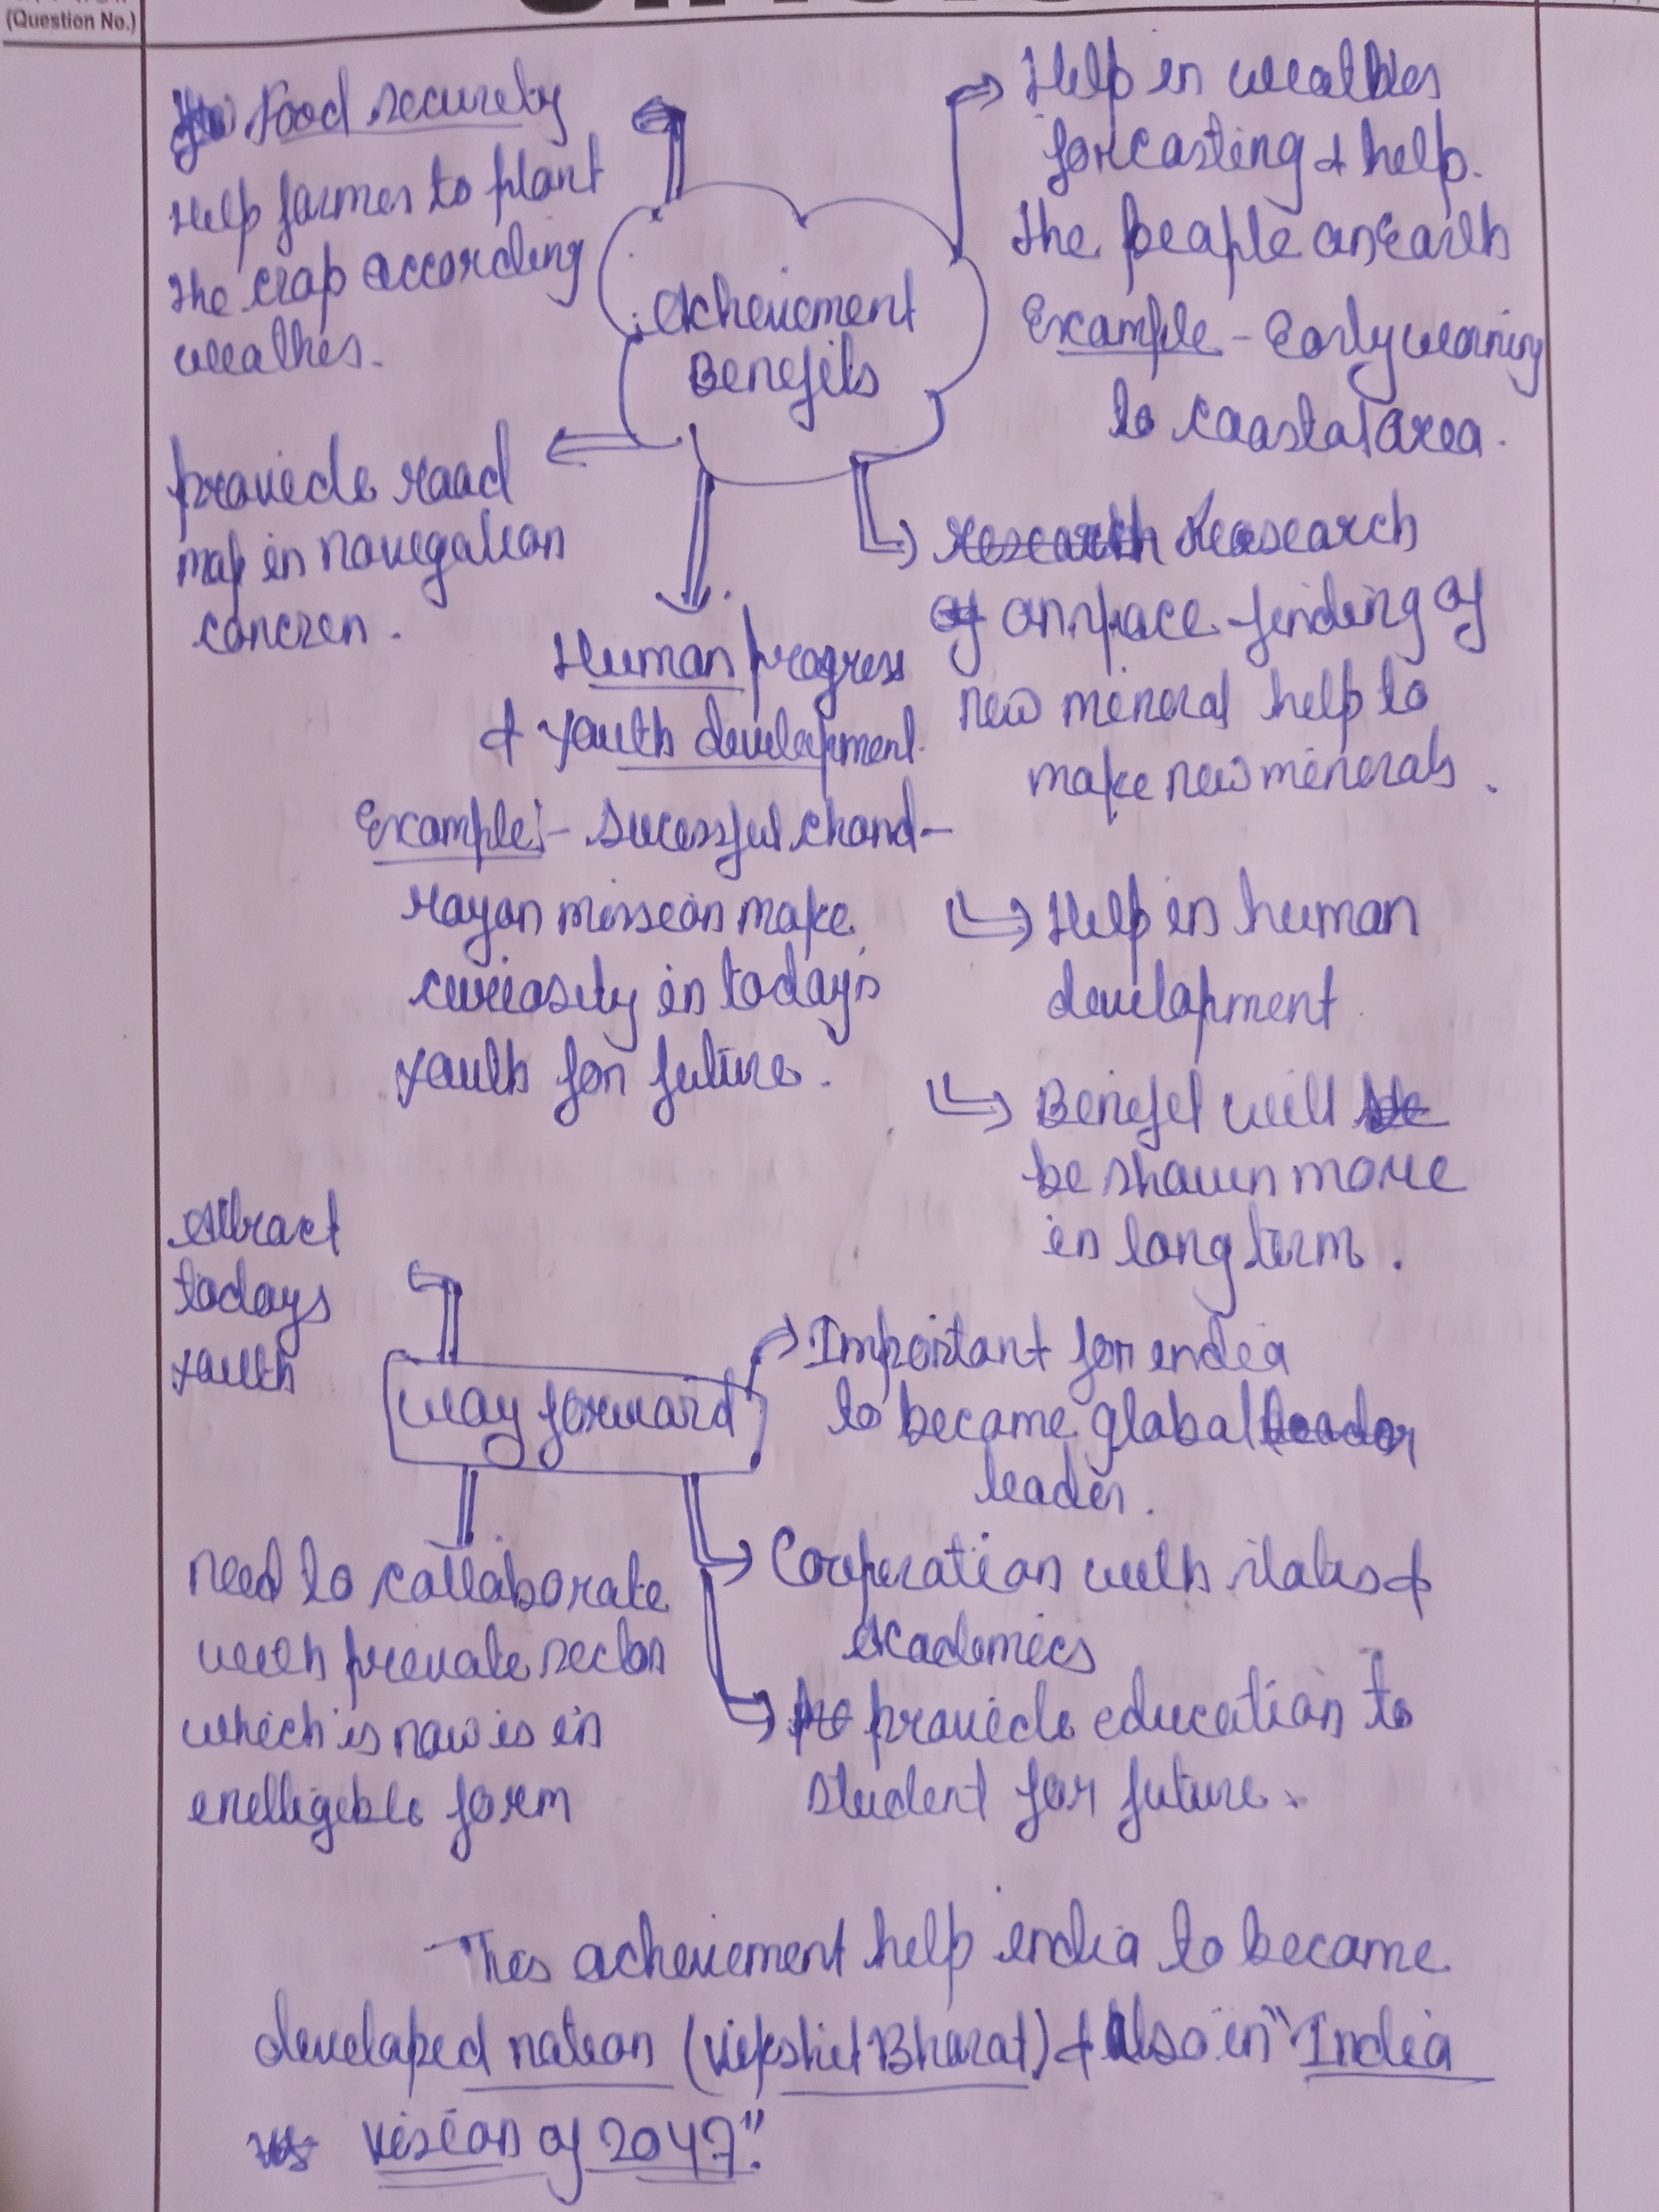 (Question No.)
Food security
Help farmer to plant
the crop according
weather.
Achievement
Benefits
Help in weather
forcasting & help.
the people on Earth
Example - Early warning
to coastal area.
provide road
map in navigation
concren.
research Reasearch
of on space finding of
new mineral help to
make new minerals.
Human progress
& youth development.
Example:- Sucessful chand-
rayan mission make
curiosity in today's
youth for future.
Help in human
development
Benifet will be
be shown more
in long term.
Attract
todays
youth
way forward
Important for india
to became global leader
leader.
need to collaborate
with private sector
which is now is in
enelligible form
Cooperation with states &
Academics
provide education to
student for future.
This achievement help india to became
developed nation (Vikshit Bharat) & Also in "India
Vision of 2047".